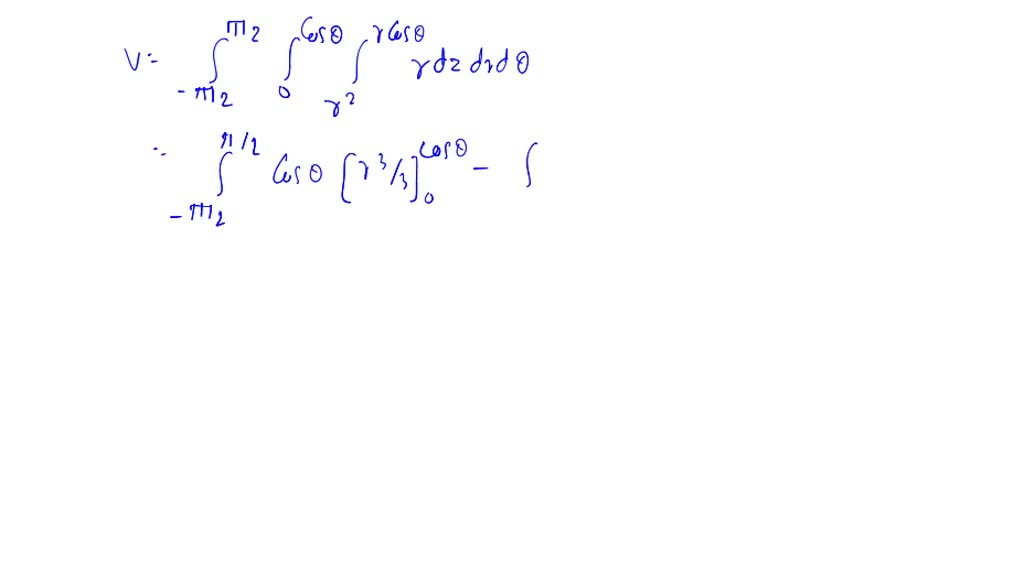 V = ∫_{-π/2}^{π/2} ∫_{0}^{Cosθ} ∫_{r²}^{rCosθ} r dz dr dθ
= ∫_{-π/2}^{π/2} Cosθ [r³/3]_{0}^{Cosθ} - ∫